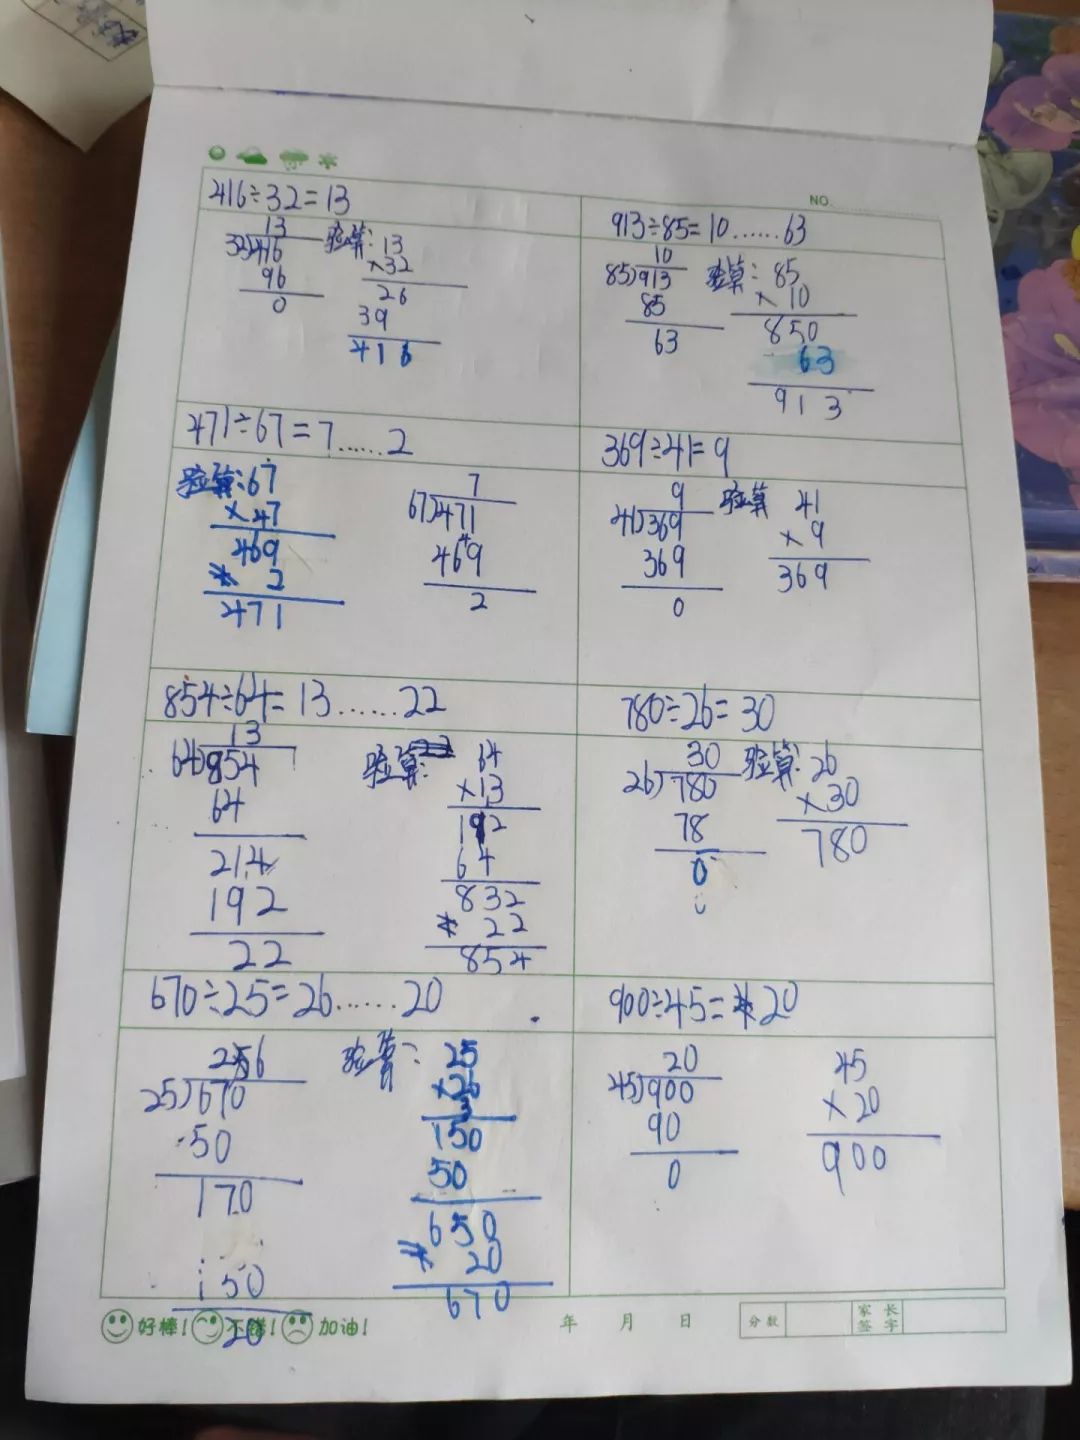 NO
416÷32=13
13
32)416
96
0
验算:13
×32
26
39
416
913÷85=10……63
10
85)913
85
63
验算:85
×10
850
63
913
471÷67=7……2
验算:67
×47
469
2
471
7
67)471
469
2
369÷41=9
9
41)369
369
0
验算 41
×9
369
854÷64=13……22
13
64)854
64
214
192
22
验算:
64
×13
192
64
832
22
854
780÷26=30
30
26)780
78
0
验算:26
×30
780
670÷25=26……20
25)670
50
170
150
20
验算:25
150
50
650
20
670
900÷45=20
20
45)900
90
0
45
×20
900
好棒! 不错! 加油! 年 月 日 分数 家长签字